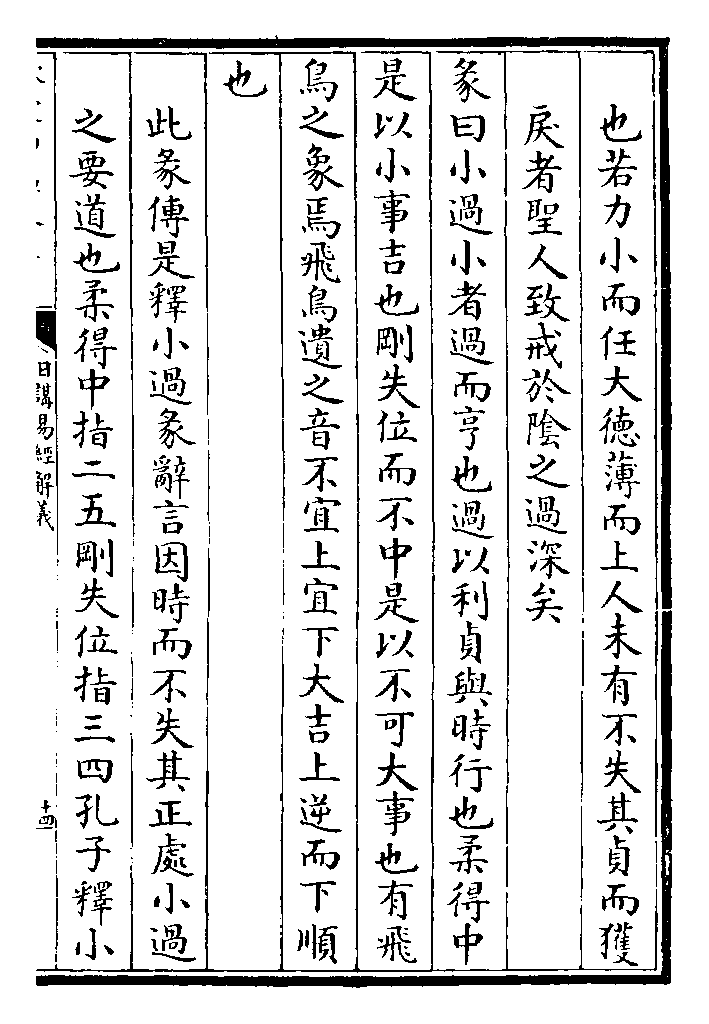 也若力小而任大德薄而上人未有不失其貞而獲
戾者聖人致戒於隂之過深矣
彖曰小過小者過而亨也過以利貞與時行也柔得中
是以小事吉也剛失位而不中是以不可大事也有飛
鳥之象焉飛鳥遺之音不宜上宜下大吉上逆而下順
也
此彖傳是釋小過彖辭言因時而不失其正處小過
之要道也柔得中指二五剛失位指三四孔子釋小
日講易經解義
十四